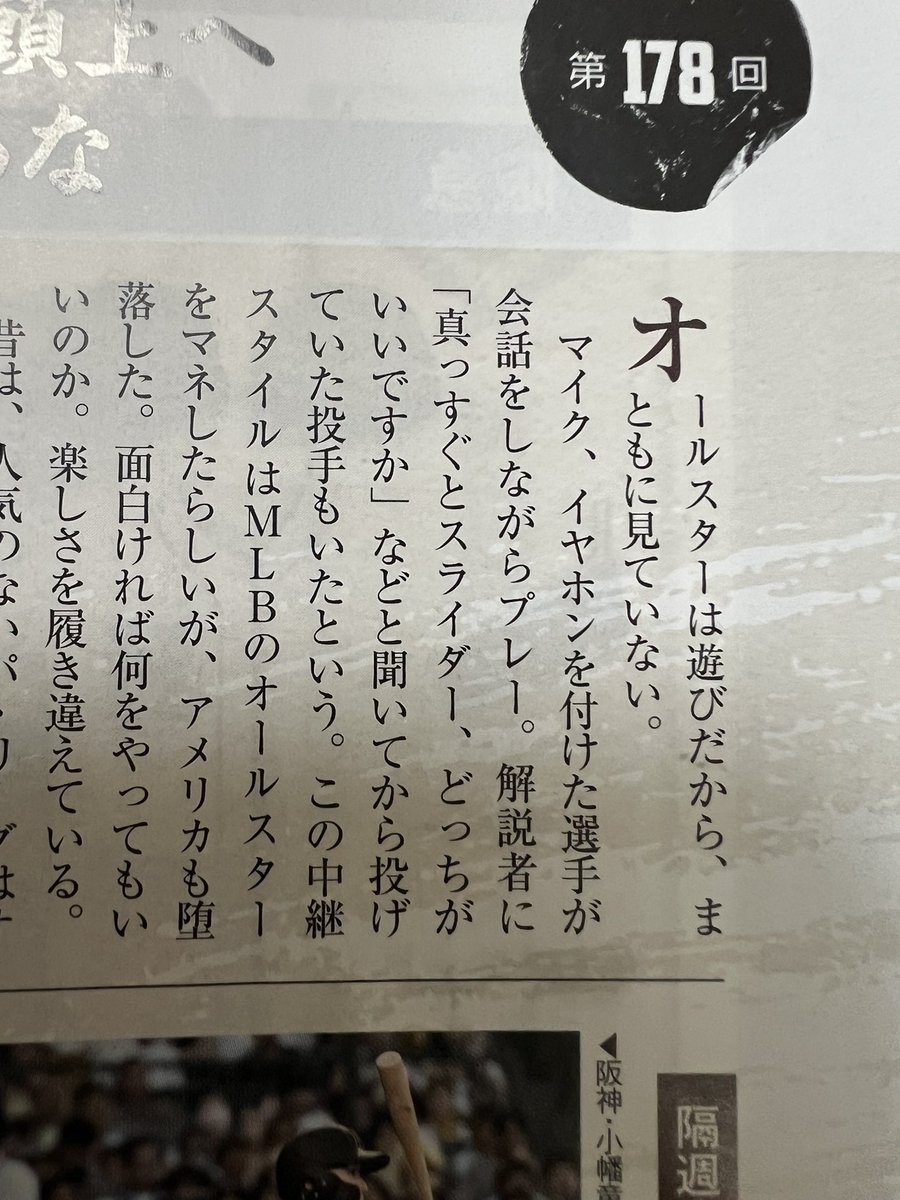 第178回
頂上へ
な
オールスターは遊びだから、ま
ともに見ていない。
マイク、イヤホンを付けた選手が
会話をしながらプレー。解説者に
「真っすぐとスライダー、どっちが
いいですか」などと聞いてから投げ
ていた投手もいたという。この中継
スタイルはMLBのオールスター
をマネしたらしいが、アメリカも堕
落した。面白ければ何をやってもい
いのか。楽しさを履き違えている。
昔は、人気のないパ・リーグは
隔週
◀阪神・小幡竜